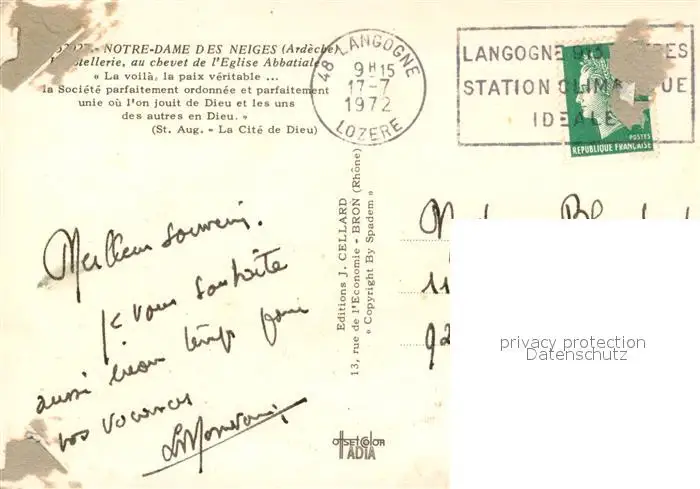 NOTRE-DAME DES NEIGES (Ardèche)
au chevet de l'Eglise Abbatiale
« La voilà, la paix véritable ...
la Société parfaitement ordonnée et parfaitement
unie où l'on jouit de Dieu et les uns
des autres en Dieu. »
(St. Aug. - La Cité de Dieu)
48 LANGOGNE
9H15
17-7
1972
LOZERE
LANGOGNE
STATION
IDEALE
POSTES
REPUBLIQUE FRANÇAISE
Editions J. CELLARD
13, rue de l'Economie - BRON (Rhône)
« Copyright By Spadem »
Meilleur souvenir.
je vous souhaite
aussi beau temps pour
vos vacances
11
92
privacy protection
Datenschutz
offset color
ADIA